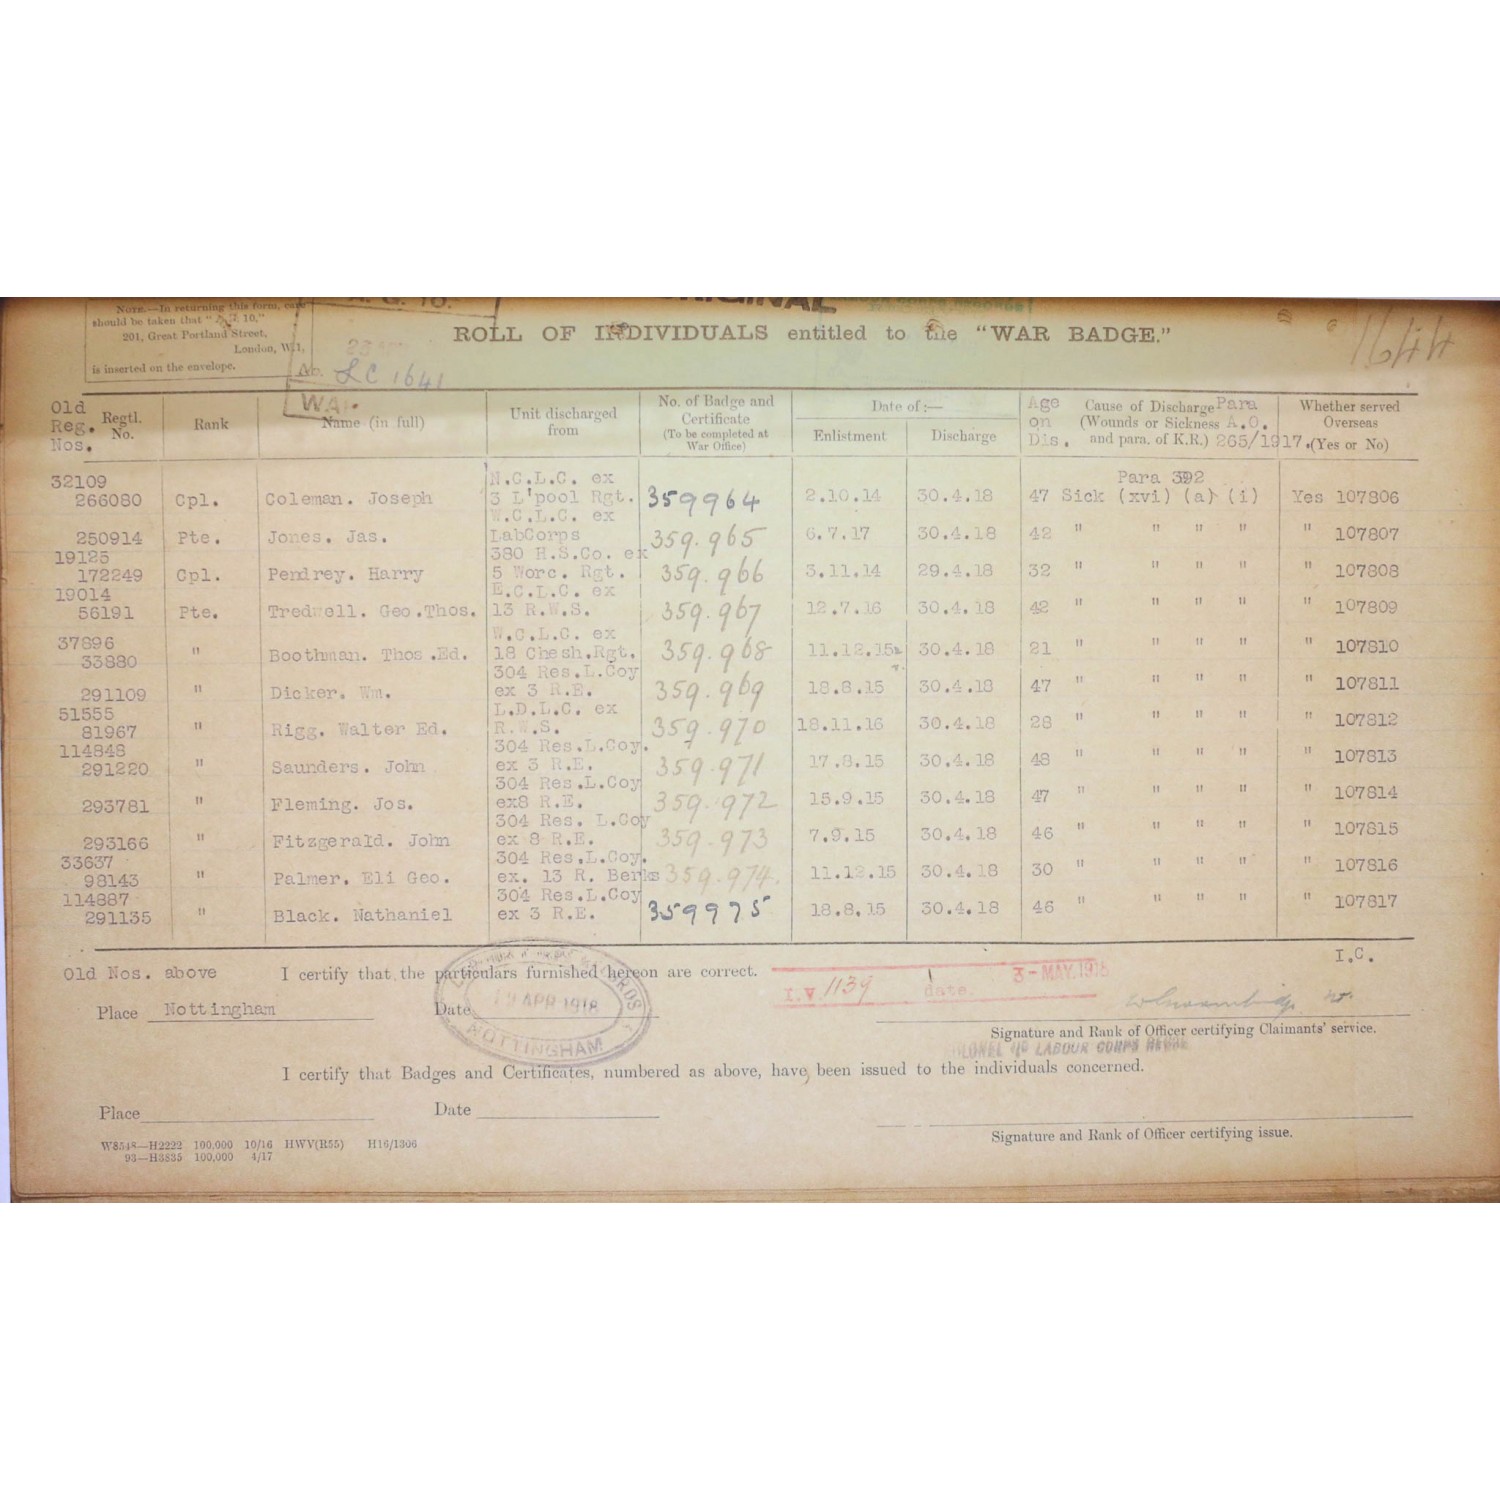 NOTE.—In returning this form, care
should be taken that "A.G. 10,"
201, Great Portland Street,
London, W.1,
is inserted on the envelope.
A. G. 10.
ORIGINAL
No. LC 1641
WAR
ROLL OF INDIVIDUALS entitled to the "WAR BADGE."
1644
Old Reg. Nos. Regtl. No. Rank Name (in full) Unit discharged from No. of Badge and Certificate (To be completed at War Office) Date of:— Enlistment Discharge Age on Dis. Cause of Discharge Para (Wounds or Sickness A.O. and para. of K.R.) 265/1917. Whether served Overseas (Yes or No)
32109 N.C.L.C. ex Para 392
266080 Cpl. Coleman. Joseph 3 L'pool Rgt. 359964 2.10.14 30.4.18 47 Sick (xvi) (a) (i) Yes 107806
W.C.L.C. ex
250914 Pte. Jones. Jas. LabCorps 359.965 6.7.17 30.4.18 42 " " " " " 107807
19125 380 H.S.Co. ex
172249 Cpl. Pendrey. Harry 5 Worc. Rgt. 359.966 3.11.14 29.4.18 32 " " " " " 107808
19014 E.C.L.C. ex
56191 Pte. Tredwell. Geo.Thos. 13 R.W.S. 359.967 12.7.16 30.4.18 42 " " " " " 107809
37896 W.C.L.C. ex
33880 " Boothman. Thos.Ed. 18 Chesh.Rgt. 359.968 11.12.15 30.4.18 21 " " " " " 107810
304 Res.L.Coy
291109 " Dicker. Wm. ex 3 R.E. 359.969 18.8.15 30.4.18 47 " " " " " 107811
51555 L.D.L.C. ex
81967 " Rigg. Walter Ed. R.W.S. 359.970 18.11.16 30.4.18 28 " " " " " 107812
114848 304 Res.L.Coy.
291220 " Saunders. John ex 3 R.E. 359.971 17.8.15 30.4.18 48 " " " " " 107813
304 Res.L.Coy
293781 " Fleming. Jos. ex8 R.E. 359.972 15.9.15 30.4.18 47 " " " " " 107814
304 Res. L.Coy
293166 " Fitzgerald. John ex 8 R.E. 359.973 7.9.15 30.4.18 46 " " " " " 107815
33637 304 Res.L.Coy.
98143 " Palmer. Eli Geo. ex. 13 R. Berks 359.974. 11.12.15 30.4.18 30 " " " " " 107816
114887 304 Res.L.Coy
291135 " Black. Nathaniel ex 3 R.E. 359975 18.8.15 30.4.18 46 " " " " " 107817
I.C.
Old Nos. above I certify that the particulars furnished hereon are correct.
I.V 1139 date. 3-MAY.1918
Place Nottingham Date
APR 1918
RECORDS
NOTTINGHAM
Signature and Rank of Officer certifying Claimants' service.
COLONEL I/C LABOUR CORPS
I certify that Badges and Certificates, numbered as above, have been issued to the individuals concerned.
Place Date
Signature and Rank of Officer certifying issue.
W8548—H2222 100,000 10/16 HWV(R55) H16/1306
93—H3835 100,000 4/17